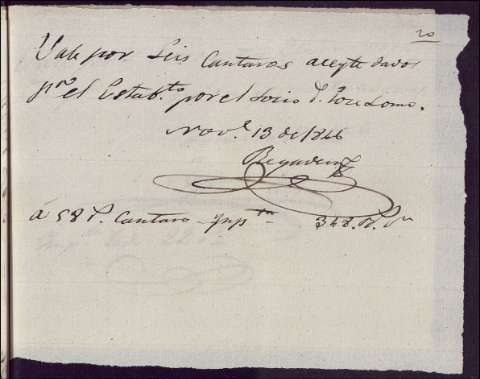 20
Vale por seis Cantaros aceyte dados
pra el Establto por el Socio D. Jose Lomo.
Novе. 13 de 1846
á 58 r. Cantaro Impta 348. R. Vn